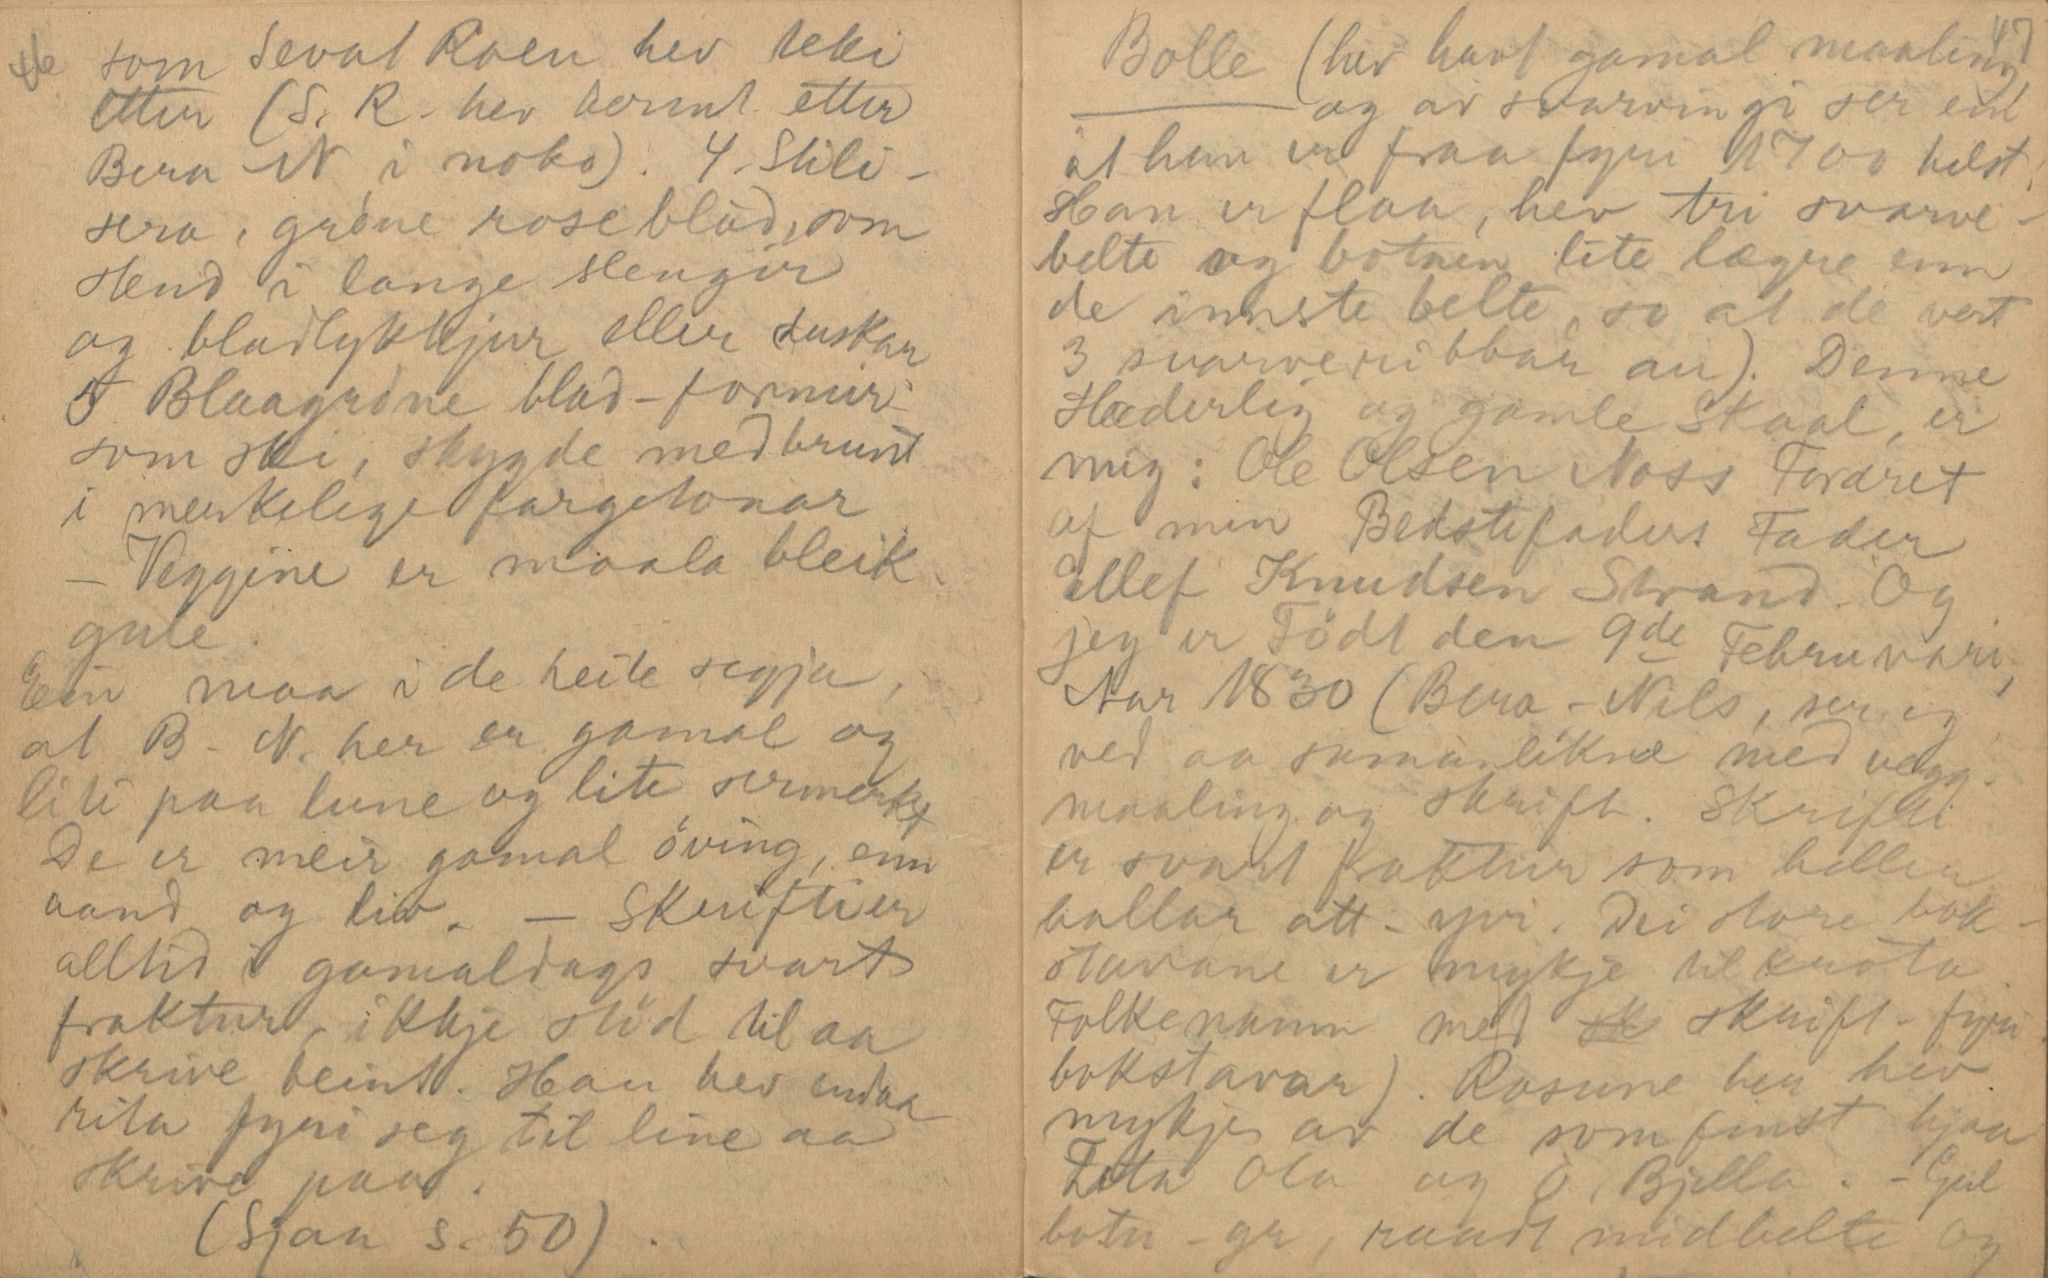 46
som Sevat Roen hev teki
etter (S. R. hev lerint etter
Bera N i noko). 4. Stili-
sera, gröne roseblad, som
stend i lange slengir
og bladlykkjur eller duskar
5 Blaagröne blad-formir
som ski, skygde med brunt
i merkelege fargetonar
- Veggine er maala bleik-
gule.
Ein maa i de heile segja,
at B-N. her er gamal og
liti paa lune og lite sermerkt
De er meir gamal öving, enn
aand og liv. - Skrifti er
alltid i gamaldags svart
fraktur, ikkje stöd til aa
skrive beint. Han hev endaa
rita fyri seg til line aa
skrive paa.
(Sjaa s. 50).
47
Bolle (hev havt gamal maaling
og av svarvingi ser ein
at han er fraa fyri 1700 helst.
Han er flaa, hev tri svarve-
belte og botnen lite lægre enn
de innste belte, so at de vert
3 svarveribbar au). Denne
Hæderlig og gamle Skaal, er
mig: Ole Olsen Noss Fordret
af min Bedstefaders Fader
Ellef Knudsen Strand. Og
jeg er Födt den 9de Februvari,
Aar 1830 (Bera-Nils, ser eg
ved aa samanlikne med vegg-
maaling og skrift. Skrifti
er svart fraktur som heller
ballar att-yvi. Dei store bok-
stavane er mykje tilkrota
Folkenamn med skrift-fyri
bokstavar). Rosune her hev
mykje av de som finst hjaa
Teta Ola og O. Bjella. - Gul
botn-gr, raudt midbelte og